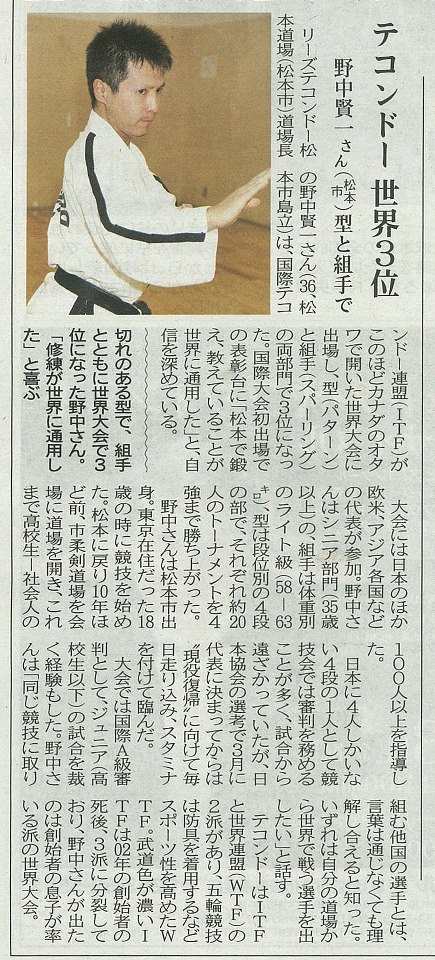 テコンドー 世界3位
野中賢一さん(松本市)型と組手で
リーズテコンドー松
本道場(松本市)道場長
の野中賢一さん(36、松
本市島立)は、国際テコ
ンドー連盟(ITF)が
このほどカナダのオタ
ワで開いた世界大会に
出場し、型(パターン)
と組手(スパーリング)
の両部門で3位になっ
た。国際大会初出場で
の表彰台に「松本で鍛
え、教えていることが
世界に通用した」と、自
信を深めている。
切れのある型で、組手
とともに世界大会で3
位になった野中さん。
「修練が世界に通用し
た」と喜ぶ
大会には日本のほか
欧米、アジア各国など
の代表が参加。野中さ
んはシニア部門(35歳
以上)の、組手は体重別
のライト級(58-63
キロ)、型は段位別の4段
の部で、それぞれ約20
人のトーナメントを4
強まで勝ち上がった。
野中さんは松本市出
身。東京在住だった18
歳の時に競技を始め
た。松本に戻り10年ほ
ど前、市柔剣道場を会
場に道場を開き、これ
まで高校生ー社会人の
100人以上を指導し
た。
日本に4人しかいな
い4段の1人として競
技会では審判を務める
ことが多く、試合から
遠ざかっていたが、日
本協会の選考で3月に
代表に決まってからは
"現役復帰"に向けて毎
日走り込み、スタミナ
を付けて臨んだ。
大会では国際A級審
判として、ジュニア(高
校生以下)の試合を裁
く経験もした。野中さ
んは「同じ競技に取り
組む他国の選手とは、
言葉は通じなくても理
解し合えると知った。
いずれは自分の道場か
ら世界で戦う選手を出
したい」と話す。
テコンドーはITF
と世界連盟(WTF)の
2派があり、五輪競技
は防具を着用するなど
スポーツ性を高めたW
TF。武道色が濃いI
TFは02年の創始者の
死後、3派に分裂して
おり、野中さんが出た
のは創始者の息子が率
いる派の世界大会。